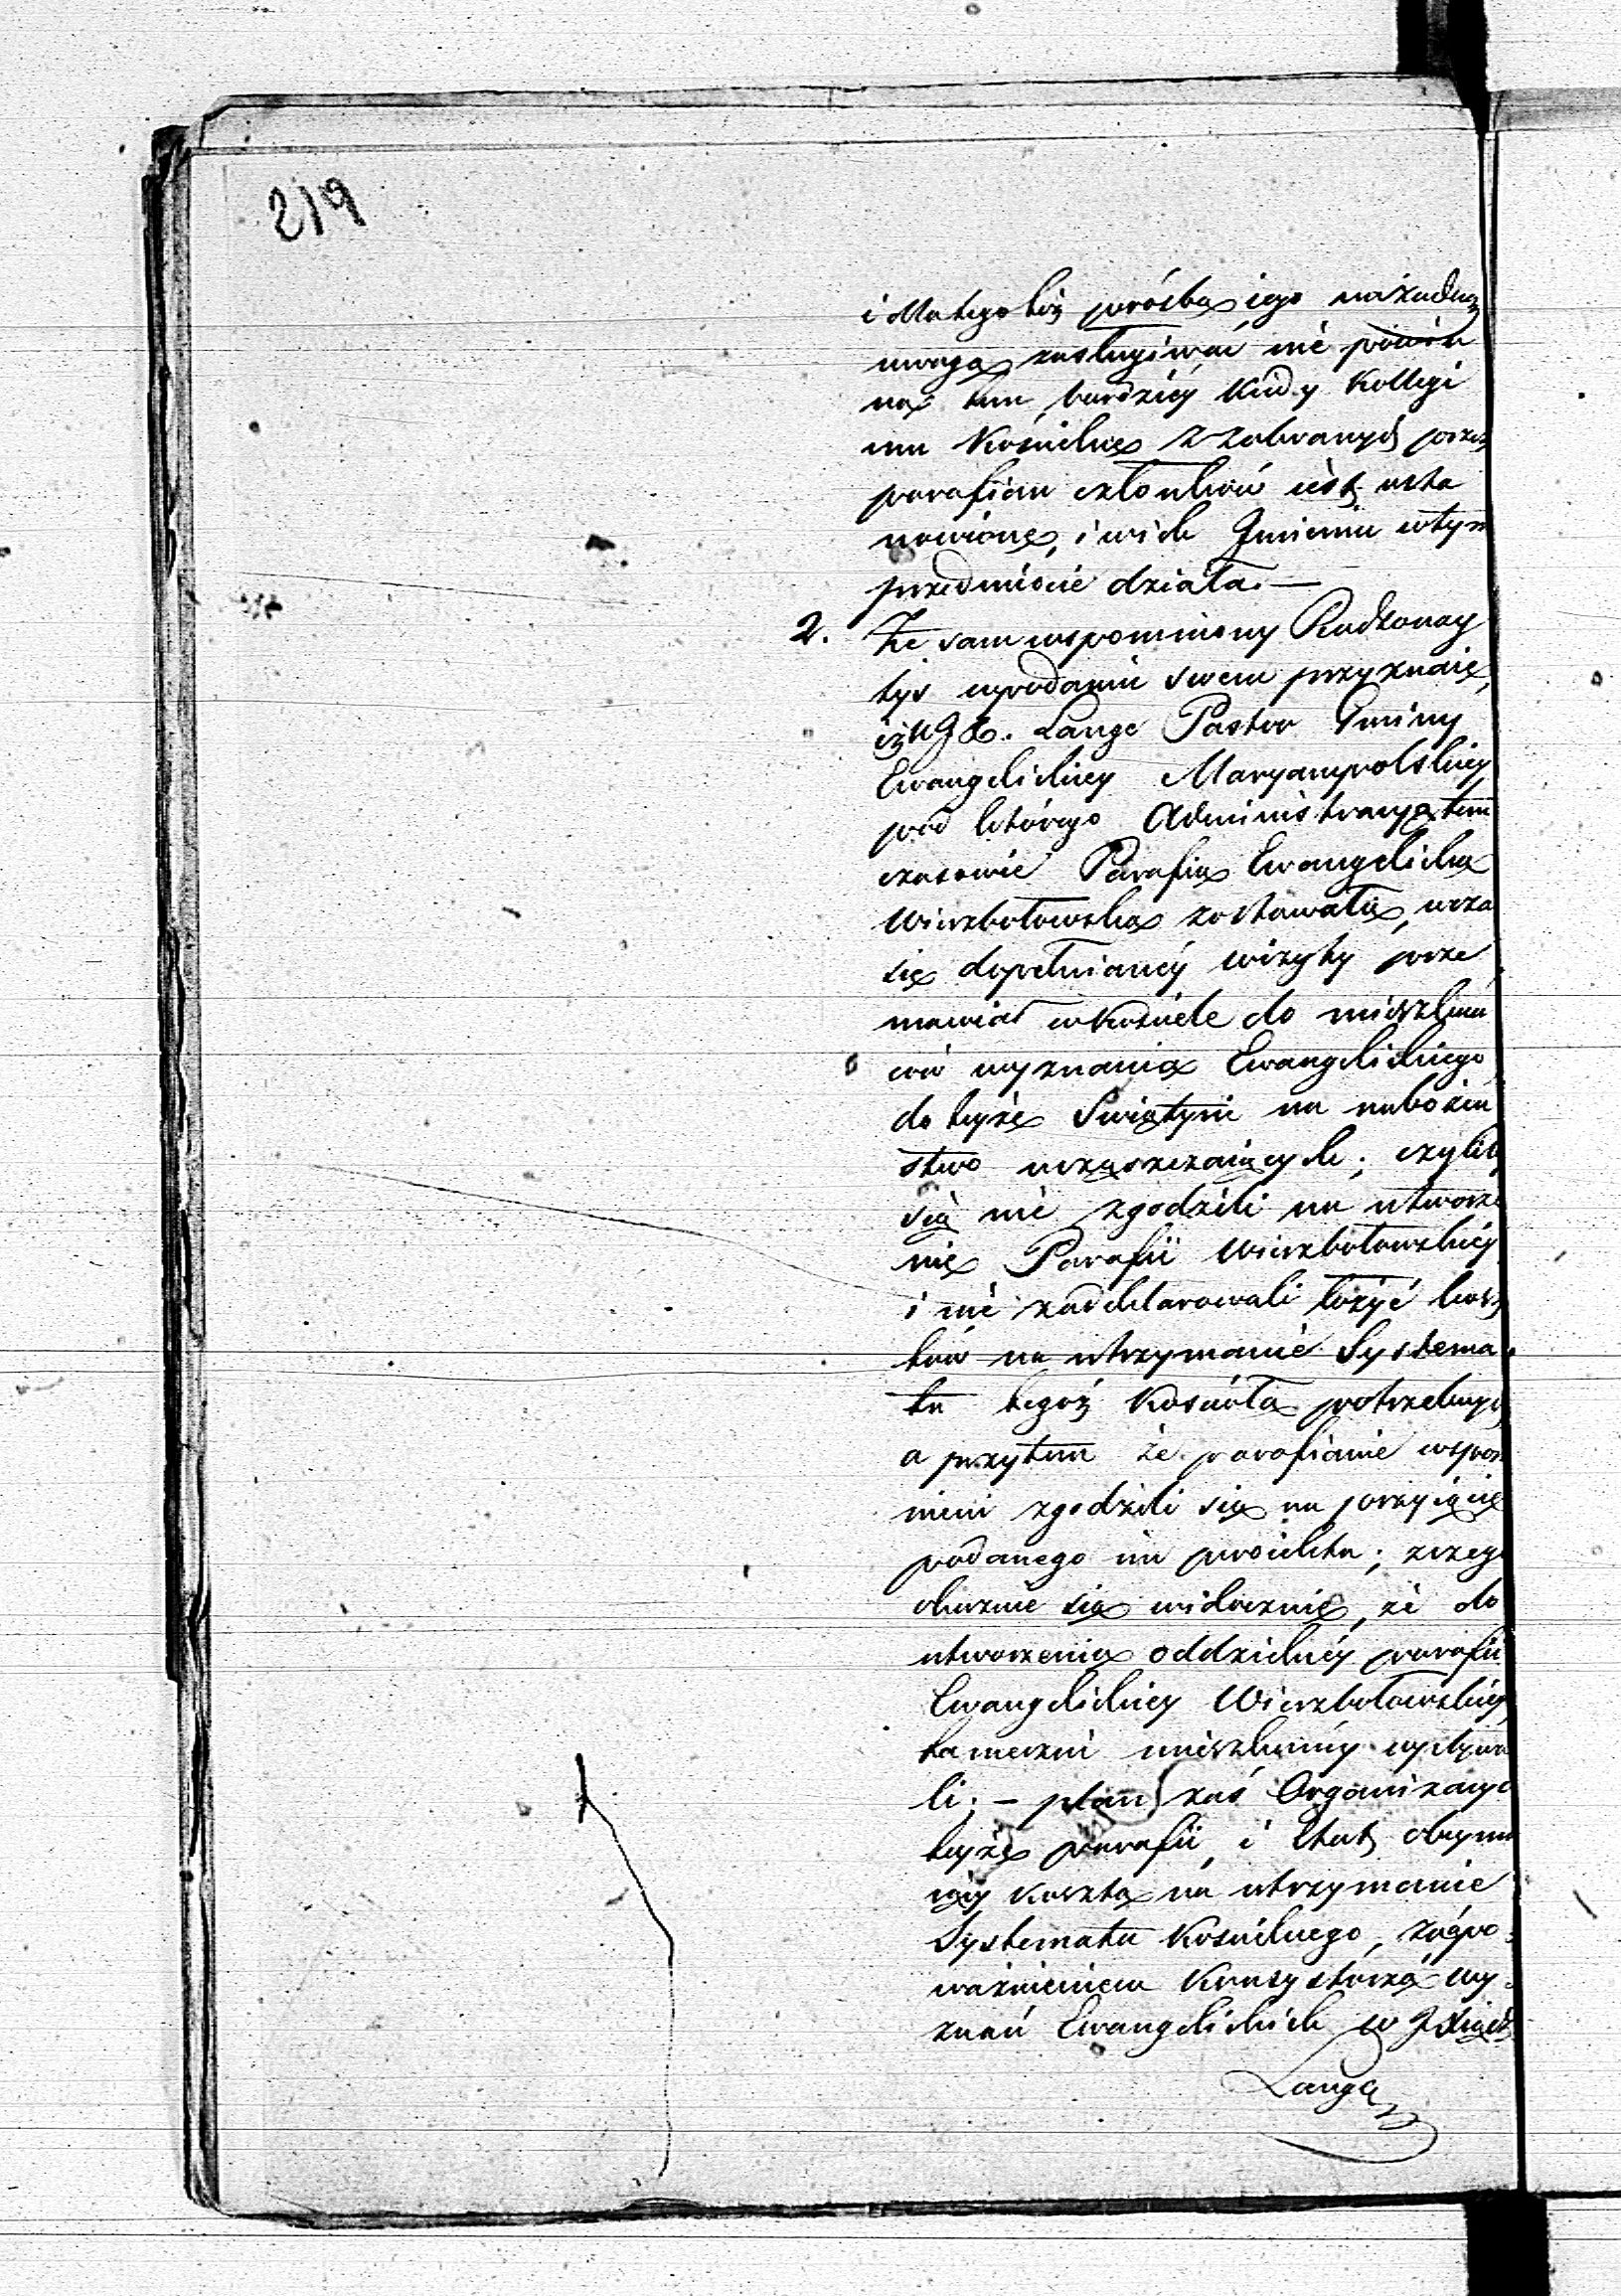 219
i dla tego też prośba iego na żadną
uwagę zasługiwać nie powin
na tem bardziéy kiedy Kollegi
um Kościelne z zabranych przez
parafian członków iest usta
nowione, i w ich Imieniu w tym
przedmiocie działa. —
2. Że sam wspomniony Radzonay
tys w podaniu swem przyznaie,
iż WJX. Lange Pastor Gminy
Ewangelickiey Maryampolskiey
pod którego Administracyą tym
czasowie Parafia Ewangelicka
Wierzbołowska zostawała, w cza
sie dopełnianéy wizyty prze
mawiał w Kościele do mieszkań
ców wyznania Ewangelickiego
do teyże Świątyni na nabożeń
stwo uczęszczaiących; czyliby
się nie zgodzili na utworze
nie Parafii Wierzbołowskiéy
i nie zadeklarowali łożyć kosz
tów na utrzymanie Systema
tu tegoż Kościoła potrzebnych
a przytem że parafianie wspom
nieni zgodzili się na przyięcie
podanego im proiektu; z czego
okazuie się widocznie, że do
utworzenia oddzielnéy parafii
Ewangelickiey Wierzbołowskiéy
tameczni mieszkańcy wpływa
li; — plan zaś Organizacyi
teyże parafii, i Etat obeymu
iący koszta na utrzymanie
Systematu Kościelnego, z upo
ważnieniem Konsystorza wy
znań Ewangelickich w
Lange